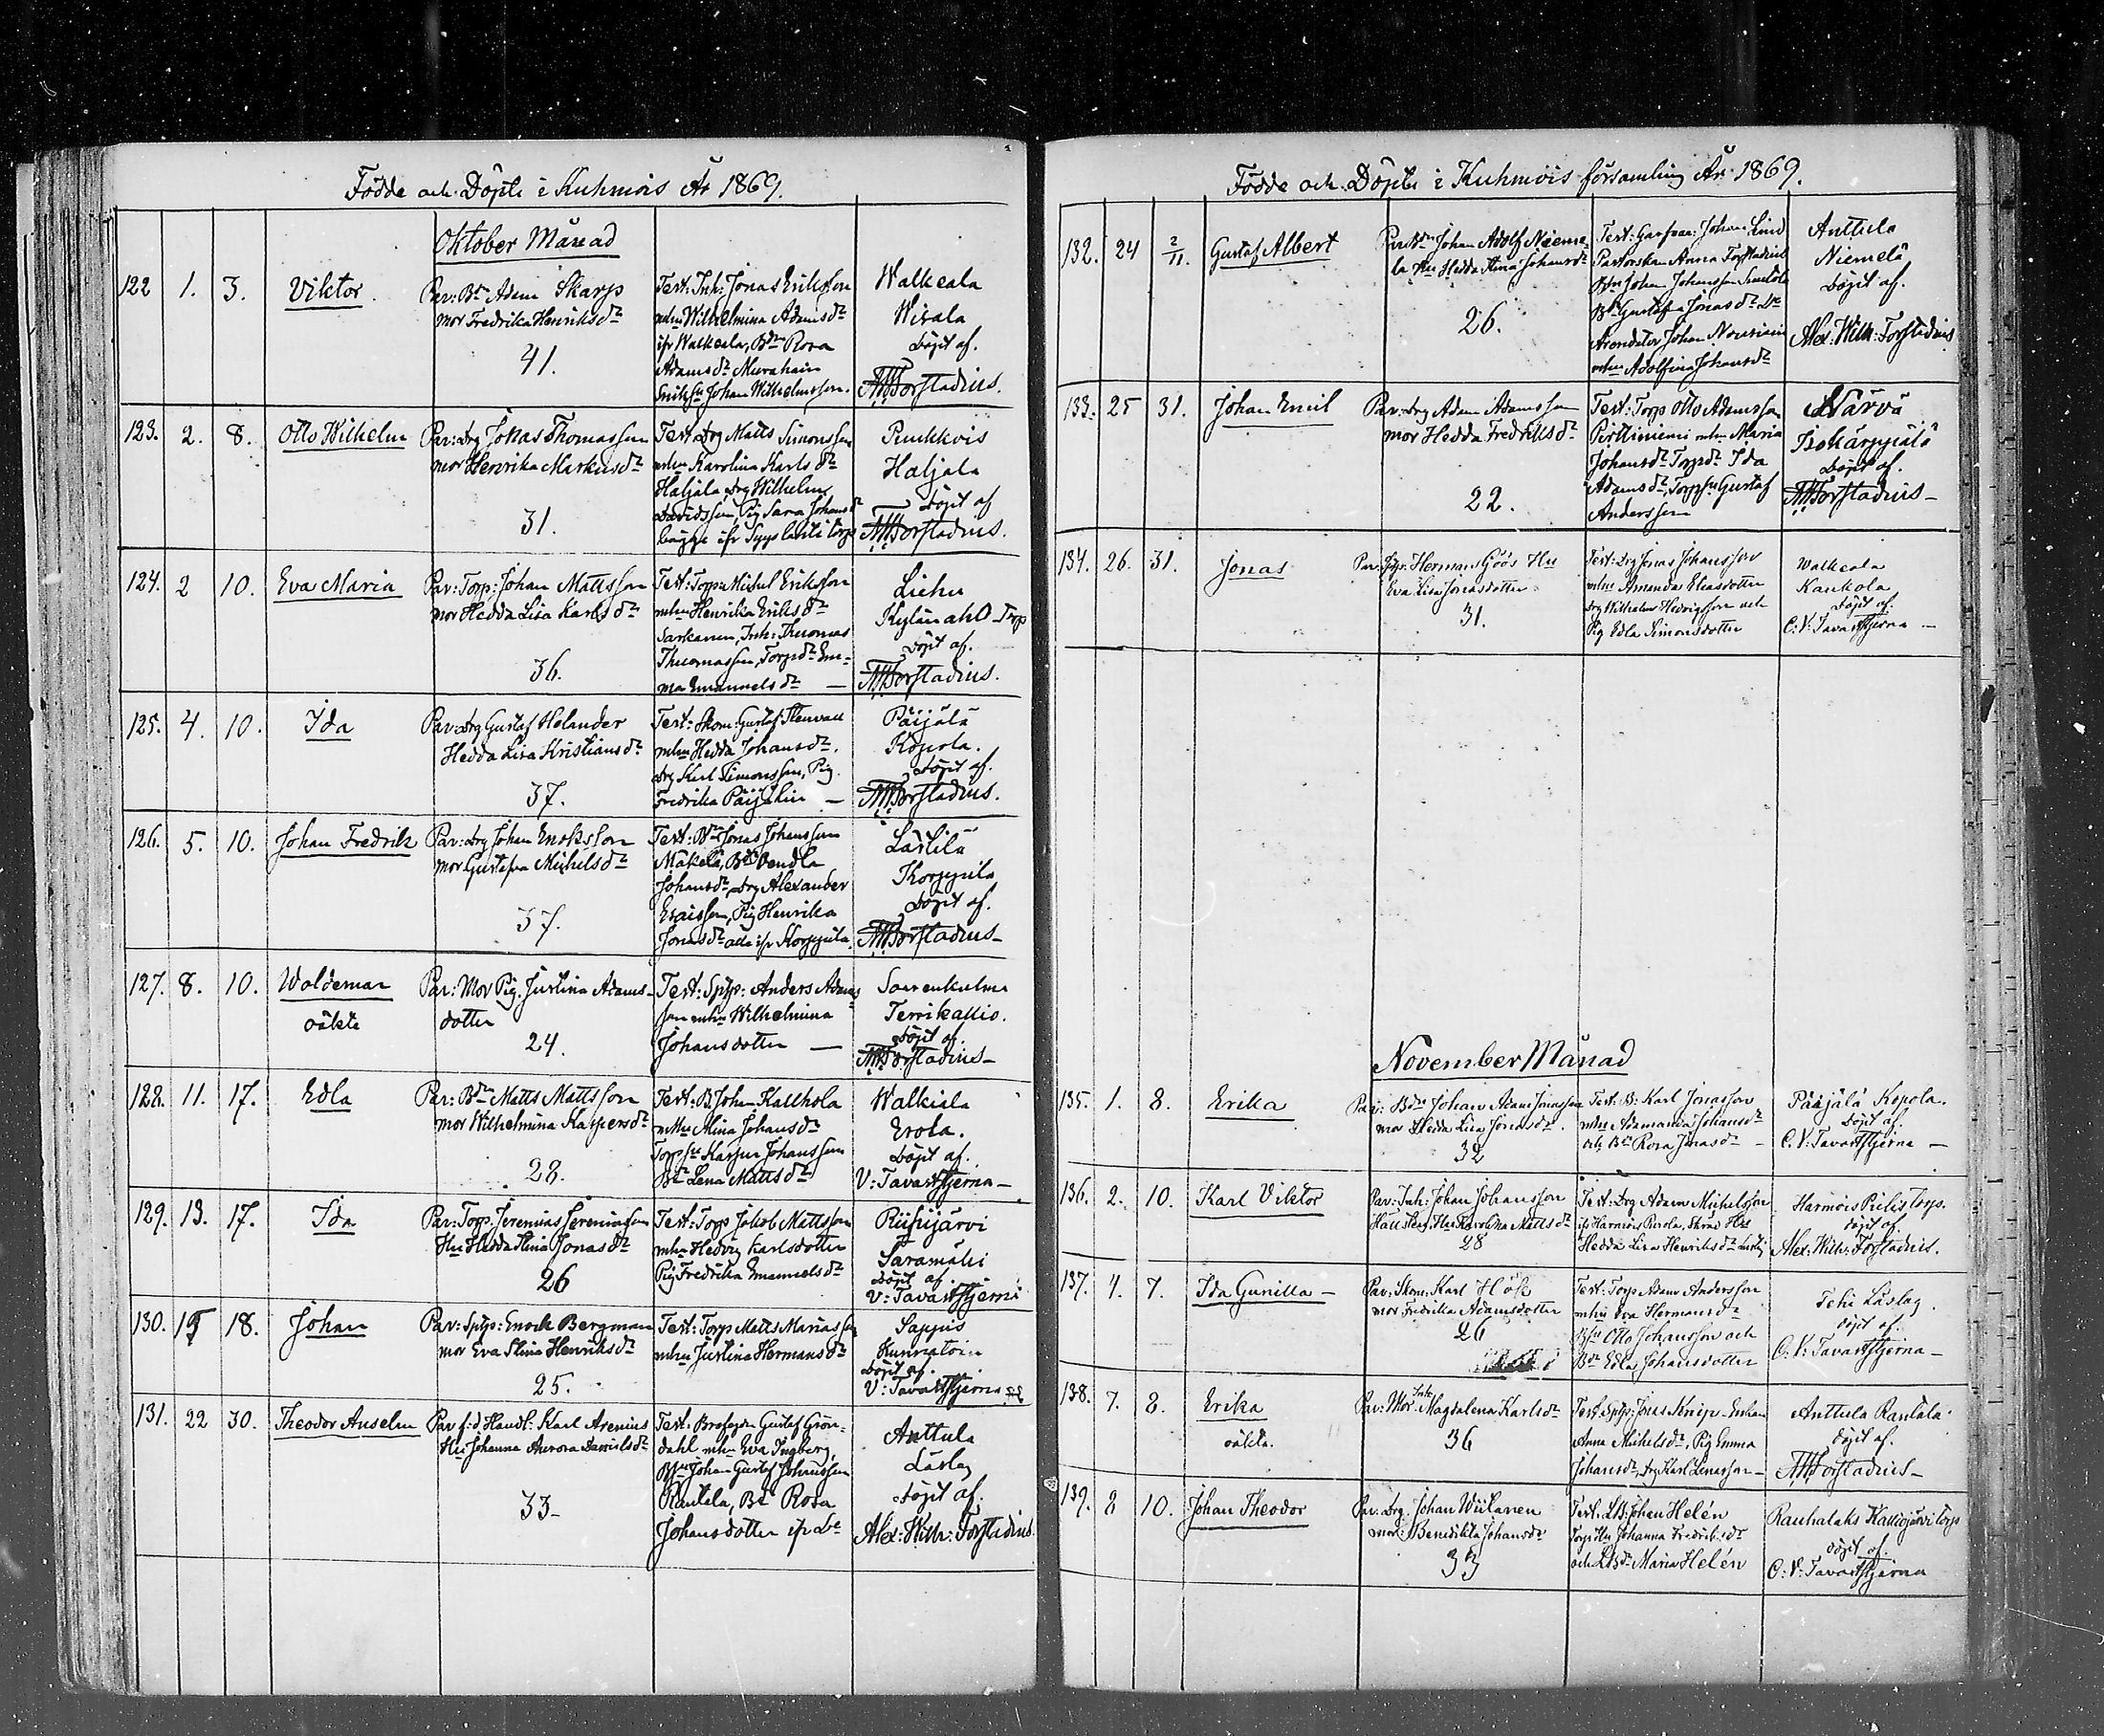 Födde och Döpte i Kuhmois År 1869.
Oktober Månad
122 1. 3. Viktor.
Par: Bdn Adam Skarp
mor Fredrika Henriksdr
41.
Test: Inh: Jonas Eriksson
mhu Wilhelmina Adamsdr
ifr Walkeala, Bdr Rosa
Adamsdr
Johan Wilhelmsson.
Walkeala
Wirala
Döpt af.
Forstadius.
123. 2. 8. Otto Wilhelm
Par: Drg Jonas Thomasson
mor Henrika Markusdr
31.
Test: Drg Matts Simonsson
mhu Karolina Karlsdr
Haljala, Drg Wilhelm
Davidsson, Pig Sara Johansdr
begge ifr torp
Puukkois
Haljala
Döpt af
Forstadius.
124. 2 10. Eva Maria
Par: Torp: Johan Mattsson
mor Hedda Lisa Karlsdr
36.
Test: Torpn Michel Eriksson
mhu Henrika Eriksdr
Sarkanen, Inh: Thuomas
Thuomasson, Torpdr Em=
ma Emanuelsdr —
Liehu
Kylänaho Torp
Döpt af.
Forstadius.
125. 4. 10. Ida
Par: Drg Gustaf Helander
Hedda Lisa Kristiansdr
37.
Test: Skom: Gustaf Stenvall
mhu Hedda Johansdr,
Drg Karl Simonsson, Pig
Fredrika Päijälin —
Päijälä
Kopola.
Döpt af.
Forstadius.
126. 5. 10. Johan Fredrik
Par: Drg Johan Enoksson
mor Gustafva Michelsdr
37.
Test: Bdn Jonas Johansson
Mäkelä, Bdr Vendla
Johansdr, Drg Alexander
Esaisson, Pig Henrika
Jonasdr alla ifr Korppula.
Lästilä
Korppula
Döpt af.
Forstadius–
127. 8. 10. Woldemar
oäkta
Par: Mor Pig. Justina Adams-
dotter
24.
Test: Sptp: Anders Adams
son mhu Wilhelmina
Johansdotter —
Sarrenkulma
Terrikallio.
Döpt af.
Forstadius–
128. 11. 17. Edla
Par: Bdn Matts Mattsson
mor Wilhelmina Kaspersdr
28.
Test: B. Johan Kallhola
mhu Mina Johansdr
Torpsn Kasper Johansson
Bdr Lena Mattsdr
Walkiala
Erola.
Döpt af.
V: Tavaststjerna–
129. 13. 17. Ida
Par: Torp: Jeremias Jeremiasson
Hu Hedda Stina Jonasdr
26
Test: Torp Jakob Mattsson
mhu Hedvig Karlsdotter
Pig Fredrika Emanuelsdr
Riihijärvi
Saramäki
Döpt af.
V: Tavaststjerna
130. 15 18. Johan
Par: Sptp: Enock Bergman
mor Eva Stina Henriksdr
25.
Test: Torp Matts Mariasson
mhu Justina Hermansdr
Sappus
Döpt af.
V: Tavaststjerna
131. 22 30. Theodor Anselm
Par f:d Handl: Karl Arenius
Hu Johanna Aurora Danielsdr
33–
Test: Brofogden Gustaf Grön-
dahl mhu Eva Engberg,
Bsn Johan Gustaf Johansson
Rantala, Bdr Rosa
Johansdotter ifr Do
Anttula
Läslag
Döpt af.
Alex: Wilh: Forstadius.
Födde och Döpte i Kuhmois församling År 1869.
132. 24 2/11. Gustaf Albert
Par: Bdn Johan Adolf Nieme=
la Hu Hedda Stina Johansdr
26.
Test: Garfvar: Johan Lind
Pastorskan Anna Forstadius
Bsn Johan Johansson
Bdr Gustafva Jonasdr Do
Arendator Johan Nousiain
mhu Adolfina Johansdr
Anttula
Niemelä
Döpt af.
Alex: Wilh: Forstadius
133. 25 31. Johan Emil
Par: Drg Adam Adamsson
mor Hedda Fredriksdr
22.
Test: Torp Otto Adamsson
Pirttiniemi mhu Maria
Johansdr Torpdr Ida
Adamsdr, Torpsn Gustaf
Andersson
Särvä
Isokärppälä
Döpt af.
Forstadius–
134. 26. 31. Jonas
Par: Sptp: Herman Göös Hu
Eva Lisa Jonasdotter.
31.
Test: Drg Jonas Johansson
mhu Amanda Eliasdotter
Drg Wilhelm Hedvigsson och
Pig Edla Simonsdotter
Walkeala
Kaukola
Döpt af.
C: V: Tavaststjerna –
November Månad
135. 1. 8. Erika
Par: Bdn Johan Adam Jonasson
mor Hedda Lisa Jonasdr.
32
Test: B: Karl Jonasson
mhu Adamanda Johansdr
och Bdr Rosa Jonasdr –
Päijälä Kopola.
Döpt af.
C. V: Tavaststjerna –
136. 2. 10. Karl Viktor
Par: Inh: Johan Johansson
Hällsten, Hu Karolina Mattsdr
28
Test: Drg Adam Michelsson
ifr Harmois Perola, Skräd Hu
Hedda Lisa Henriksdr
Harmois Pielis Torp.
Döpt af.
Alex: Wilh: Forstadius.
137. 4. 7. Ida Gunilla –
Par: Skom: Karl Höök
mor Fredrika Adamsdotter
26
Test: Torp Adam Andersson
mhu Eva Hermansdr
Bsn Otto Johansson och
Bdr Edla Johansdotter
Tehi Läslag.
Döpt af.
C: V: Tavaststjerna–
138. 7. 8. Erika
oäkta.
Par: Mor. Inh: Magdalena Karlsdr
36
Test: Sptp: Jonas Knip Enkan
Anna Michelsdr, Pig Emma
Johansdr, Drg Karl Enarsson–
Anttula Rantala
Döpt af.
Forstadius–
139. 8 10. Johan Theodor
Par: Drg. Johan Wiitanen
mor: Benedikta Johansdr
33
Test: Johan Helén
Torp Hu Johanna Fredriksdr
och Maria Helén
Rauhalaks Kalliojärvi torp
Döpt af.
C: V: Tavaststjerna